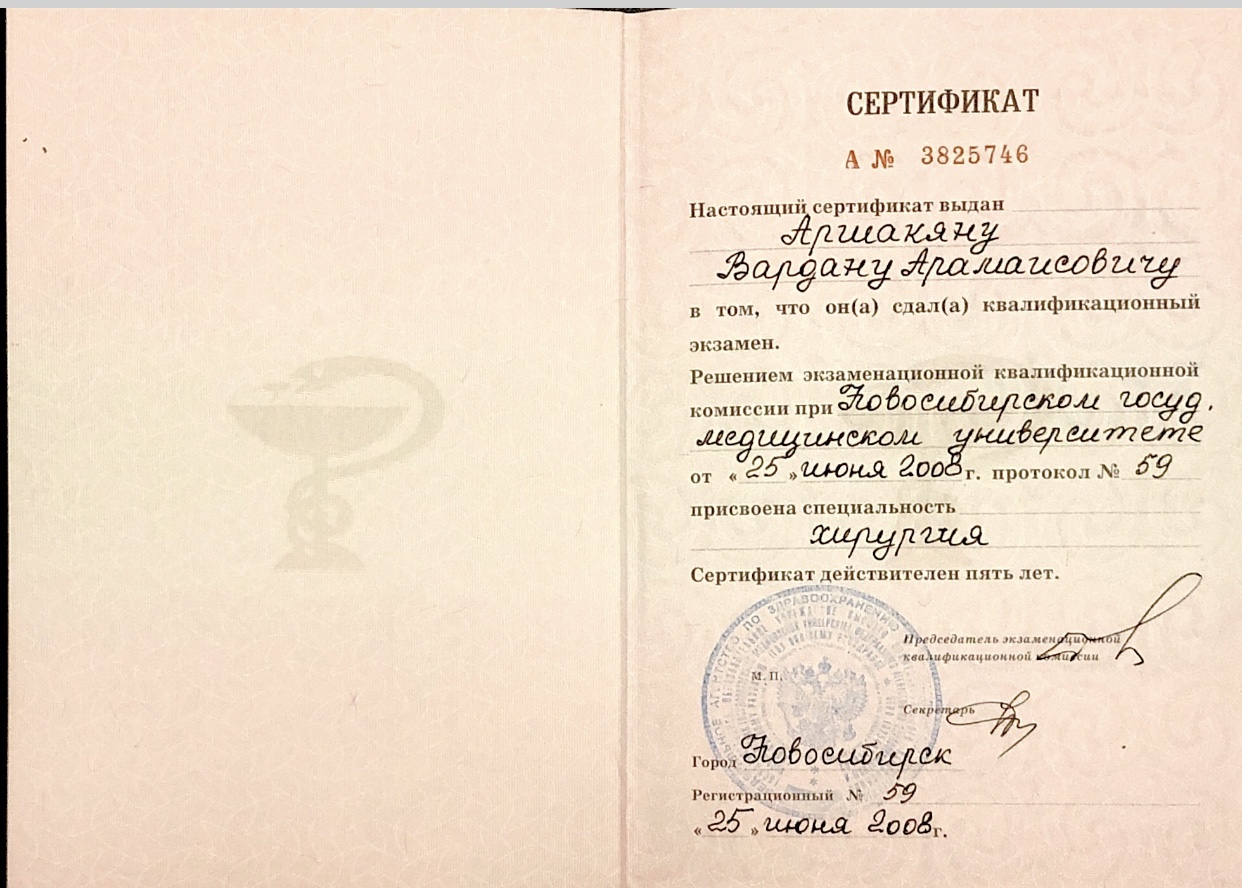 СЕРТИФИКАТ
А № 3825746
Настоящий сертификат выдан
Аршакяну
Вардану Арамаисовичу
в том, что он(а) сдал(а) квалификационный
экзамен.
Решением экзаменационной квалификационной
комиссии при Новосибирском госуд.
медицинском университете
от « 25 » июня 2008 г. протокол № 59
присвоена специальность
хирургия
Сертификат действителен пять лет.
Председатель экзаменационной
квалификационной комиссии
М. П.
Секретарь
Город Новосибирск
Регистрационный № 59
« 25 » июня 2008 г.
ПО ЗДРАВООХРАНЕНИЮ